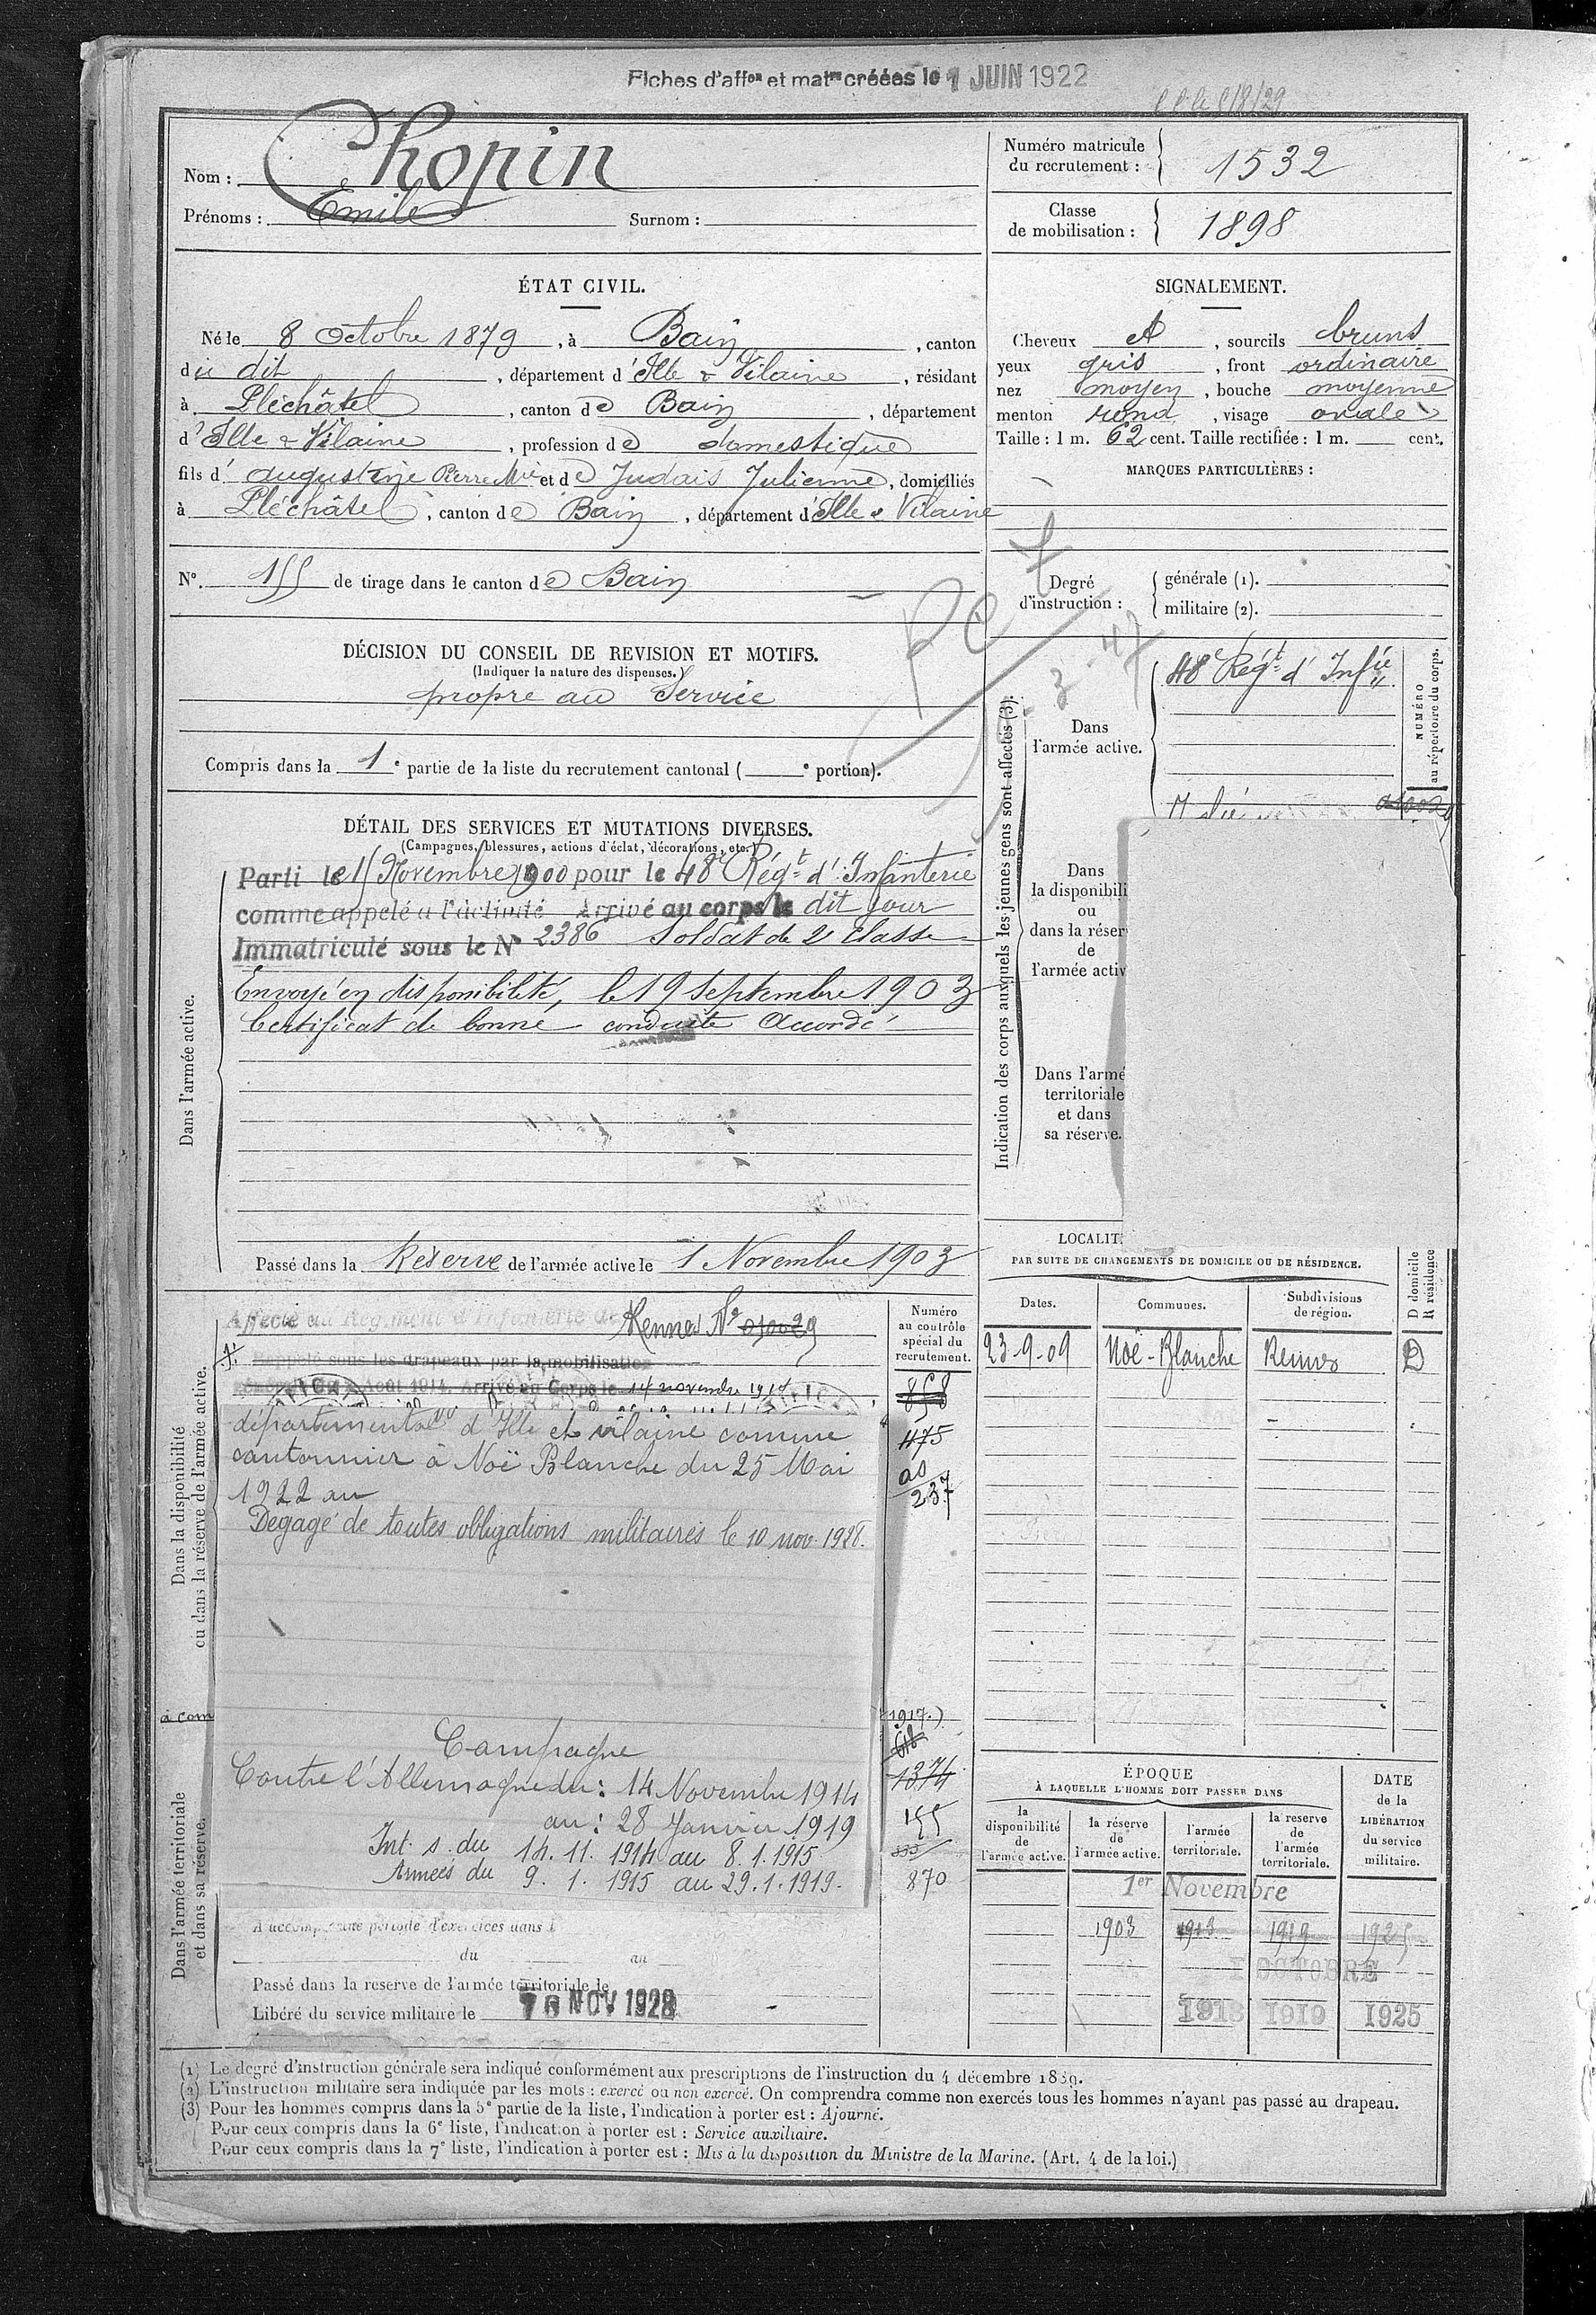 Fiches d'aff<sup>on</sup> et mat<sup>les</sup> créées le 1 JUIN 1922
Nom : Chopin
Prénoms : Emile Surnom :
Numéro matricule du recrutement : 1532
Classe de mobilisation : 1898
ÉTAT CIVIL.
Né le 8 Octobre 1879, à Bain, canton
du dit, département d'Ille & Vilaine, résidant
à Pléchâtel, canton de Bain, département
d'Ille & Vilaine, profession de domestique
fils d' augustine Pierre Mie et de Judais Julienne, domiciliés
à Pléchâtel, canton de Bain, département d'Ille & Vilaine
N° 155 de tirage dans le canton de Bain
SIGNALEMENT.
Cheveux et, sourcils bruns
yeux gris, front ordinaire
nez moyen, bouche moyenne
menton rond, visage ovale
Taille : 1 m. 62 cent. Taille rectifiée : 1 m. cent.
MARQUES PARTICULIÈRES :
Degré d'instruction : générale (1).
militaire (2).
DÉCISION DU CONSEIL DE REVISION ET MOTIFS.
(Indiquer la nature des dispenses.)
propre au Service
Compris dans la 1e partie de la liste du recrutement cantonal ( e portion).
DÉTAIL DES SERVICES ET MUTATIONS DIVERSES.
(Campagnes, blessures, actions d'éclat, décorations, etc.)
Dans l'armée active.
Parti le 15 Novembre 1900 pour le 48e Régt d'Infanterie
comme appelé à l'activité Arrivé au corps le dit jour
Immatriculé sous le N° 2386 Soldat de 2e classe
Envoyé en disponibilité, le 19 Septembre 1903
Certificat de bonne conduite Accordé
Passé dans la Réserve de l'armée active le 1 Novembre 1903
Indication des corps auxquels les jeunes gens sont affectés (3).
Dans l'armée active.
48e Régt d'Infie
NUMÉRO au répertoire du corps.
Dans
la disponibili
ou
dans la réser
de
l'armée activ
Dans l'armé
territoriale
et dans
sa réserve.
Dans la disponibilité
ou dans la réserve de l'armée active.
Affecté au Régiment d'Infanterie de Rennes No 01002g
Rappelé sous les drapeaux par la mobilisation
Août 1914. Arrivé au Corps le 14 novembre 1914
départementaux d'Ille et vilaine comme
cantonnier à Noë Blanche du 25 Mai
1922 au
Dégagé de toutes obligations militaires le 10 nov. 1928.
à com
Dans l'armée territoriale
et dans sa réserve.
Campagne
Contre l'Allemagne du : 14 Novembre 1914
au : 28 Janvier 1919
Int. s. du 14. 11. 1914 au 8. 1. 1915
Armées du 9. 1. 1915 au 29. 1. 1919.
A accompli une période d'exercices dans l
du au
Passé dans la reserve de l'armée territoriale le
Libéré du service militaire le 10 NOV 1928
Numéro
au contrôle
spécial du
recrutement.
858
475
237
1917.)
1374
155
870
LOCALIT
PAR SUITE DE CHANGEMENTS DE DOMICILE OU DE RÉSIDENCE.
Dates. Communes. Subdivisions de région. D domicile R résidence
23-9-09 Noë-Blanche Rennes D
ÉPOQUE
À LAQUELLE L'HOMME DOIT PASSER DANS
la disponibilité de l'armée active.
la réserve de l'armée active.
l'armée territoriale.
la reserve de l'armée territoriale.
DATE de la LIBÉRATION du service militaire.
1er Novembre
1903 1913 1919 1925
1 OCTOBRE
1913 1919 1925
(1) Le degré d'instruction générale sera indiqué conformément aux prescriptions de l'instruction du 4 décembre 1889.
(2) L'instruction militaire sera indiquée par les mots : exercé ou non exercé. On comprendra comme non exercés tous les hommes n'ayant pas passé au drapeau.
(3) Pour les hommes compris dans la 5e partie de la liste, l'indication à porter est : Ajourné.
Pour ceux compris dans la 6e liste, l'indication à porter est : Service auxiliaire.
Pour ceux compris dans la 7e liste, l'indication à porter est : Mis à la disposition du Ministre de la Marine. (Art. 4 de la loi.)